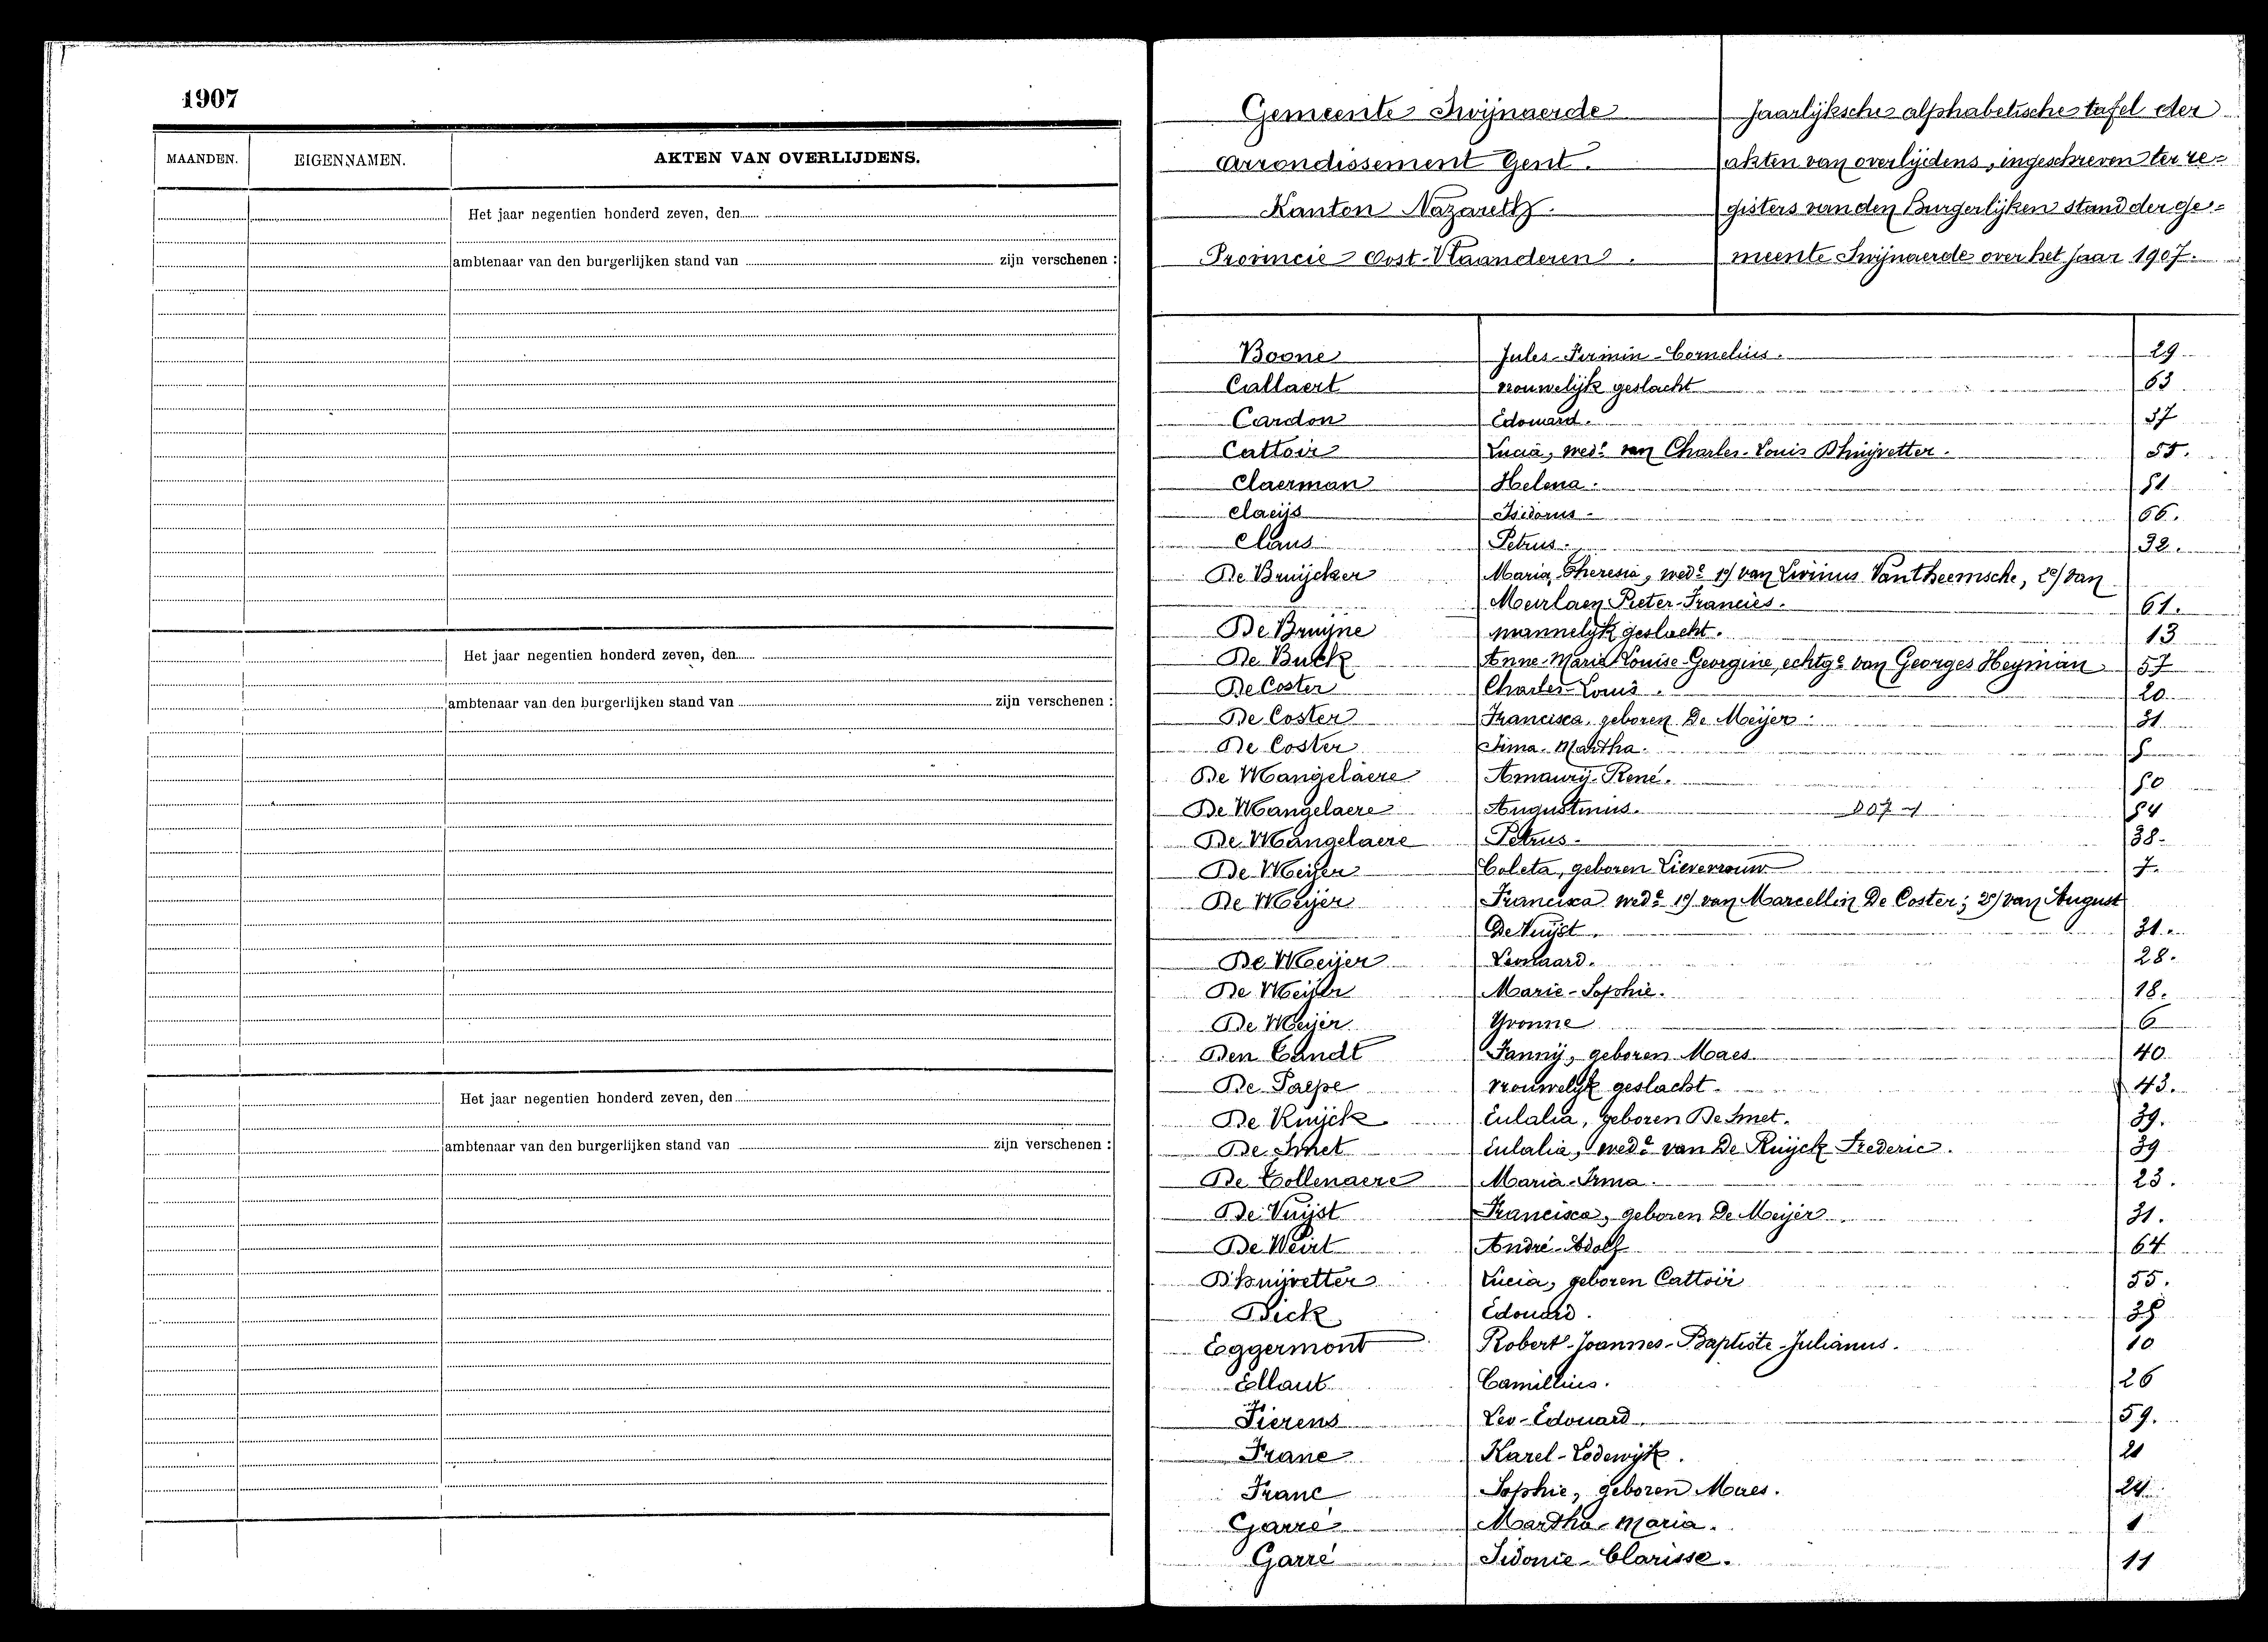 1907
MAANDEN. EIGENNAMEN. AKTEN VAN OVERLIJDENS.
Het jaar negentien honderd zeven, den
ambtenaar van den burgerlijken stand van zijn verschenen :
Het jaar negentien honderd zeven, den
ambtenaar van den burgerlijken stand van zijn verschenen :
Het jaar negentien honderd zeven, den
ambtenaar van den burgerlijken stand van zijn verschenen :
Gemeente Swijnaerde
Arrondissement Gent.
Kanton Nazareth.
Provincie Oost-Vlaanderen.
Jaarlijksche alphabetische tafel der
akten van overlijdens, ingeschreven ter re-
gisters van den Burgerlijken stand der ge-
meente Swijnaerde over het jaar 1907.
Boone Jules-Firmin-Cornelius. 29
Callaert vrouwelijk geslacht 63
Cardon Edouard. 37
Cattoir Lucia, wede van Charles-Louis D'huijvetter. 55.
Claerman Helena. 51
Claeijs Isidorus 66.
Claus Petrus. 32.
De Bruijcker Maria Theresia, wede 1°/ van Livinus Vantheemsche, 2°/ van
Meirlaen Pieter-Francies. 61.
De Bruijne mannelijk geslacht. 13
De Buck Anne-Marie-Louise-Georgine, echtge van Georges Heyman 57
De Coster Charles-Louis. 20
De Coster Francisca, geboren De Meijer. 31
De Coster Martha.
De Mangelaere Amaurij-René. 50
De Mangelaere Augustinus. 54
De Mangelaere Petrus. 38.
De Meijer Coleta, geboren Lievevrouw 7.
De Meijer Francisca wede 1°/ van Marcellin De Coster; 2°/ van August
De Vuijst. 31.
De Meijer Leonaard. 28.
De Meijer Marie-Sophie. 18.
De Meijer Yvonne 6
Den Candt Fannij, geboren Maes 40
De Paepe vrouwelijk geslacht. 43.
De Ruijck Eulalia, geboren De Smet. 39.
De Smet Eulalia, wede van De Ruijck Frederic. 39
De Tollenaere Maria-Irma. 23.
De Vuijst Francisca, geboren De Meijer 31.
De Weirt André-Adolf 64
D'huijvetter Lucia, geboren Cattoir 55.
Dick Edouard.
Eggermont Robert-Joannes-Baptiste-Julianus. 10
Ellaut Camillius. 26
Fierens Leo-Edouard. 59.
Franc Karel-Lodewijk. 21
Franc Sophie, geboren Maes. 24
Garré Martha-Maria. 1
Garré Sidonie-Clarisse. 11